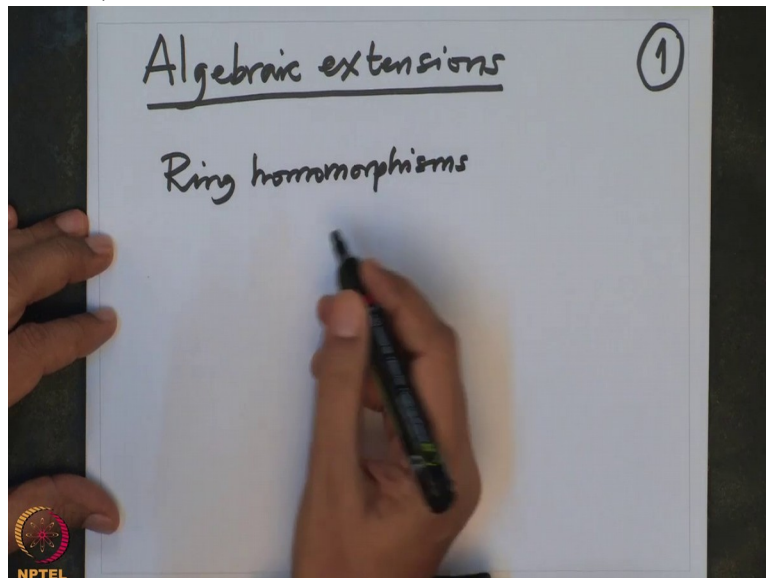 Algebraic extensions
1
Ring homomorphisms
NPTEL